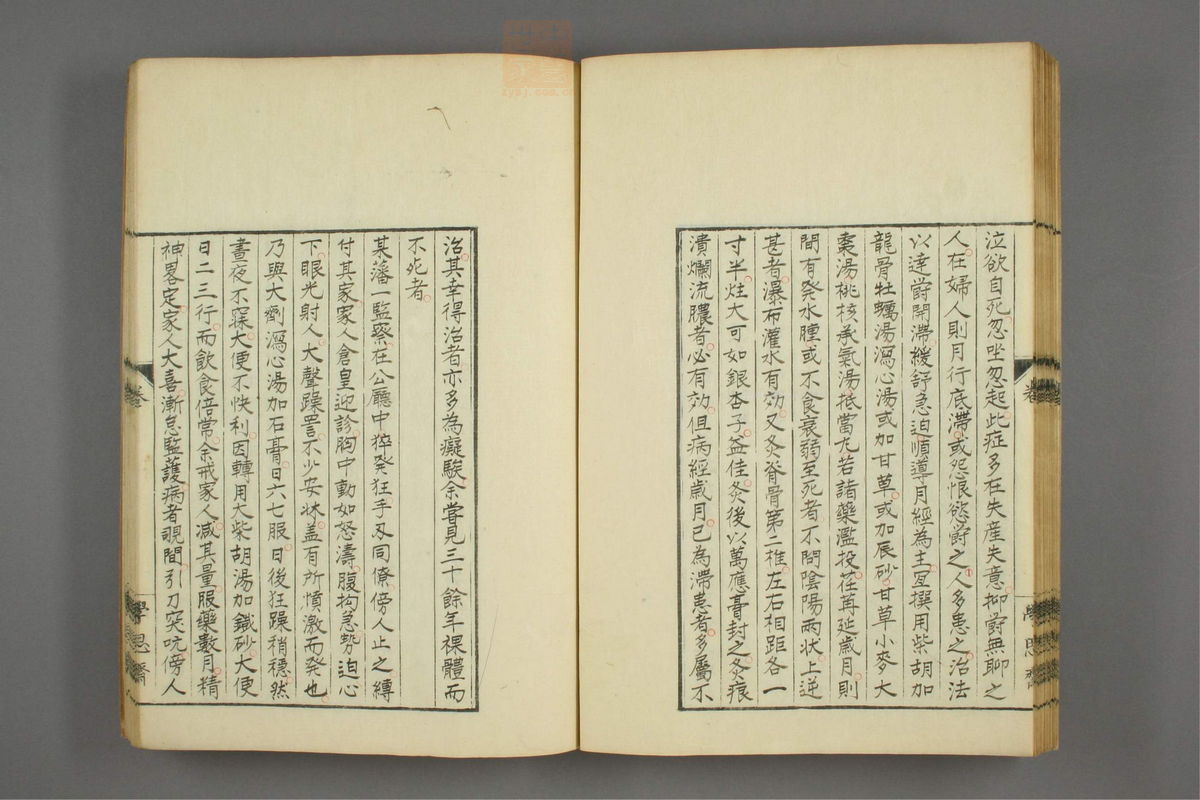 泣欲自死忽坐忽起此症多在失産失意抑欝無聊之
人在婦人則月行底滯或怨恨慾欝之人多患之治法
以達欝開滯緩舒急迫順導月經為主宐撰用柴胡加
龍骨牡蠣湯瀉心湯或加甘草或加辰砂甘草小麥大
棗湯桃核承氣湯抵當尢若諸藥濫投荏苒延歲月則
間有癸水腫或不食衰弱至死者不問陰陽兩狀上逆
甚者瀑布灌水有効又灸脊骨第二椎左右相距各一
寸半炷大可如銀杏子益佳灸後以萬應膏封之灸痕
潰爛流膿者必有効但病經歲月已為滯患者多屬不
治其幸得治者亦多為癡騃余嘗見三十餘年裸體而
不死者
某藩一監察在公廳中猝癸狂手刃同僚傍人止之縛
付其家家人倉皇迎診胸中動如怒濤腹拘急勢迫心
下眼光射人大聲躁詈不少安牀盖有所憤激而癸也
乃與大劑瀉心湯加石膏日六七服日後狂躁稍穩然
晝夜不寐大便不快利因轉用大柴胡湯加鐵砂大便
日二三行而飲食倍常余戒家人减其量服藥數月精
神畧定家人大喜漸怠監護病者覗間引刀突吭傍人
卷
學思齋